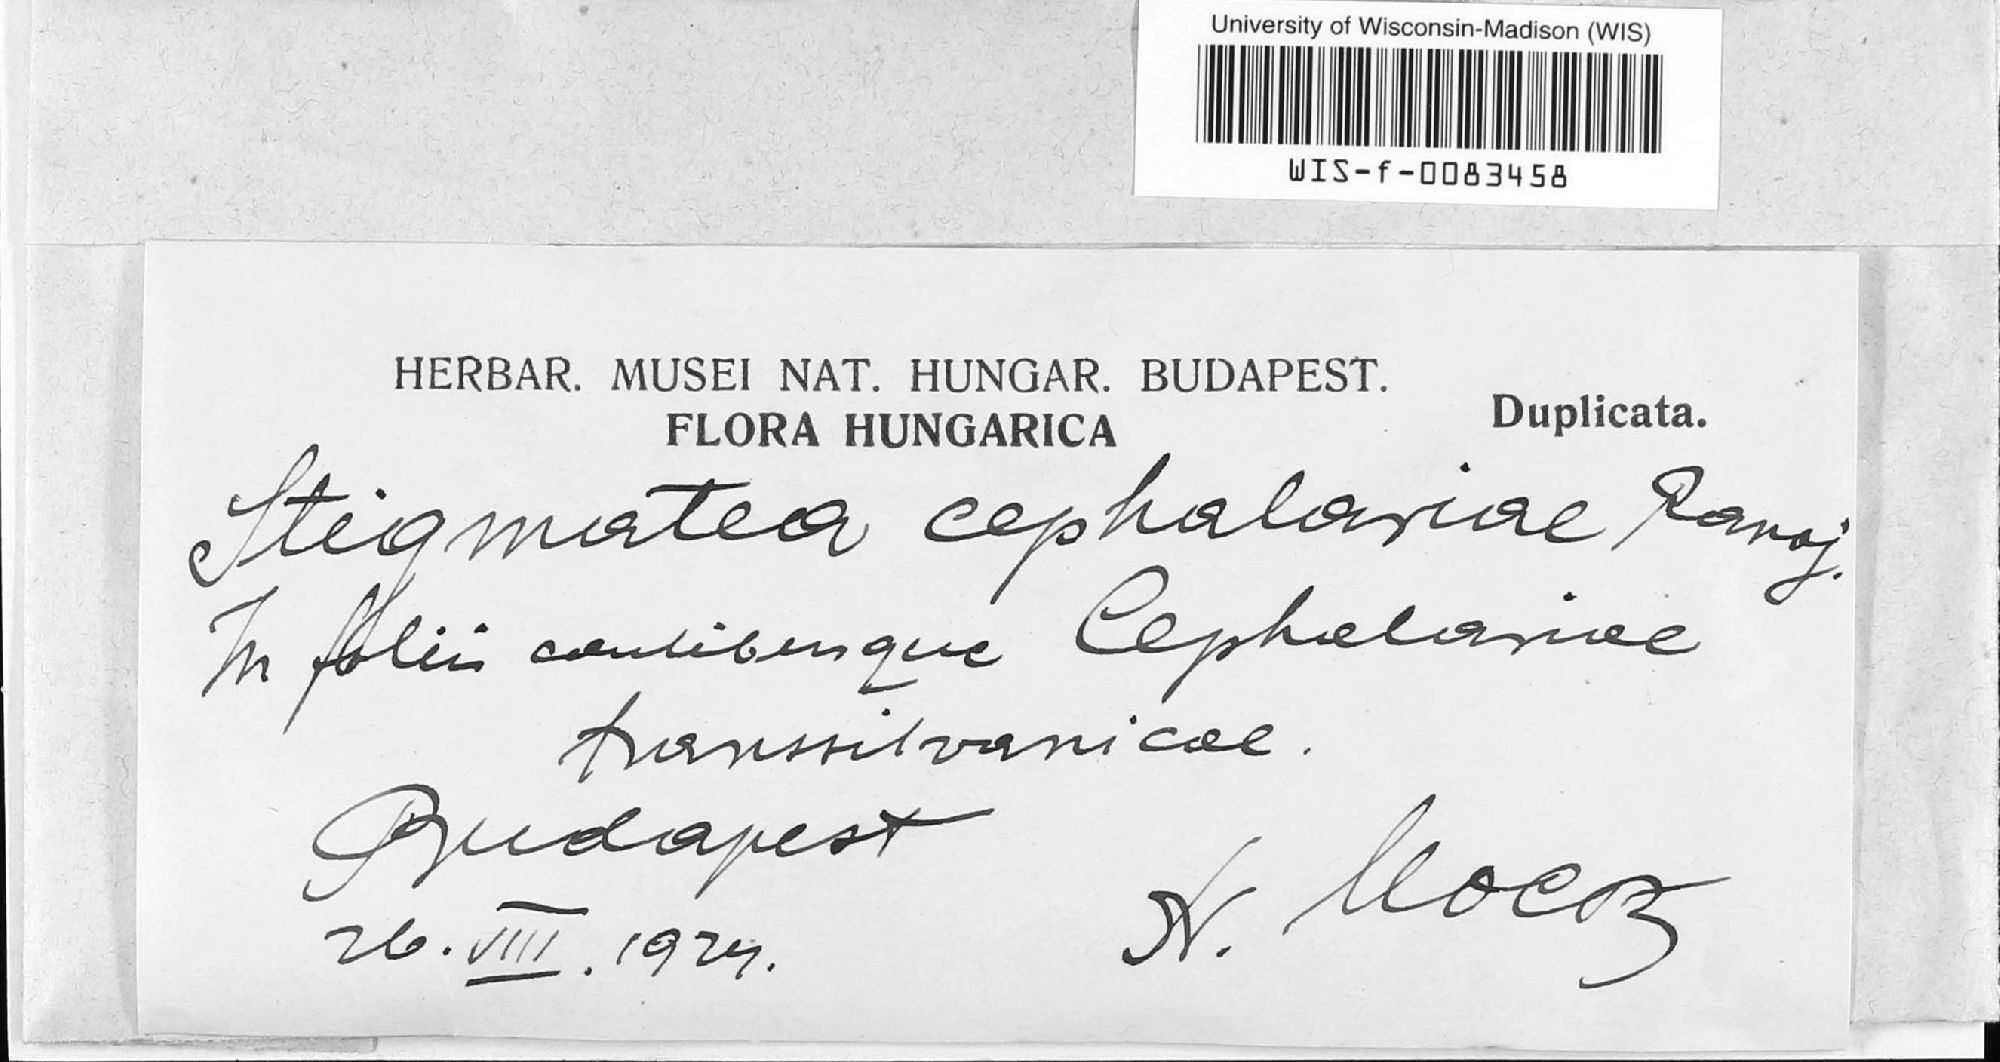 University of Wisconsin-Madison (WIS)
WIS-f-0083458
HERBAR. MUSEI NAT. HUNGAR. BUDAPEST.
FLORA HUNGARICA
Duplicata.
Stigmatea cephalariae Ranoj.
In foliis caulibusque Cephalariae
transsilvanicae.
Budapest
26. VIII. 1924.
Moesz